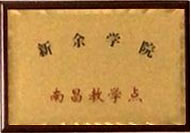 新余学院
南昌教学点